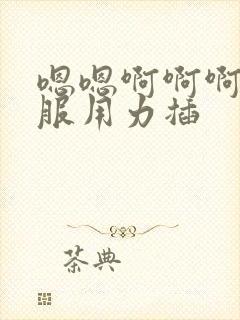 嗯嗯啊啊啊
服用力插
茶典